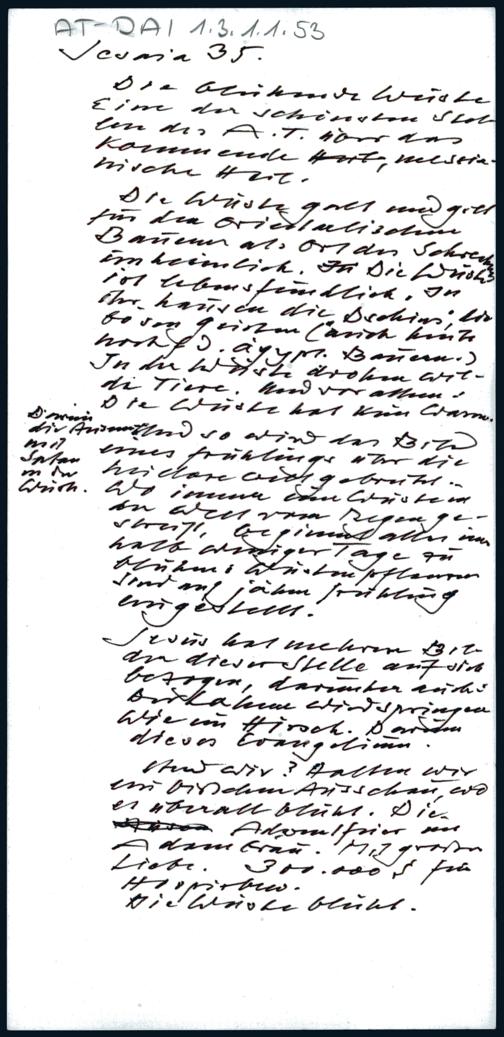 AT-DAI 1.3.1.1.53
Jesaia 35.
Die blühende Wüste
Eine der schönsten Stel-
len des A.T. über das
kommende Heil, messia-
nische Heil.
Die Wüste galt und gilt
für den orientalischen
Bauern als Ort des Schreckens
unheimlich. In Die Wüste
ist lebensfeindlich. In
ihr hausen die Dschins, die
bösen Geister (auch heute
noch f. ägypt. Bauern.)
In der Wüste drohen wil-
de Tiere. Und vor allem:
Die Wüste hat kein Wasser.
Darum
die Auseinan
mit
Satan
in der
Wüste.
Und so wird das Bild
eines Frühlings über die
wird gebracht..
Wo immer eine Wüste
der Welt vom Regen ge-
streift, beginnt alles inner
halb weniger Tage zu
blühen: Wüstenpflanzen
sind auf jähen Frühling
eingestellt.
Jesus hat mehrere Bil-
der dieser Stelle auf sich
bezogen, darunter auch:
Der Lahme wird springen
wie ein Hirsch. Darum
dieses Evangelium.
Und wir? Halten wir
ein bisschen Ausschau, wo
es überall blüht. Die
Adventfeier in
Mit großer
Liebe. 300.000 S für
Die Wüste blüht.